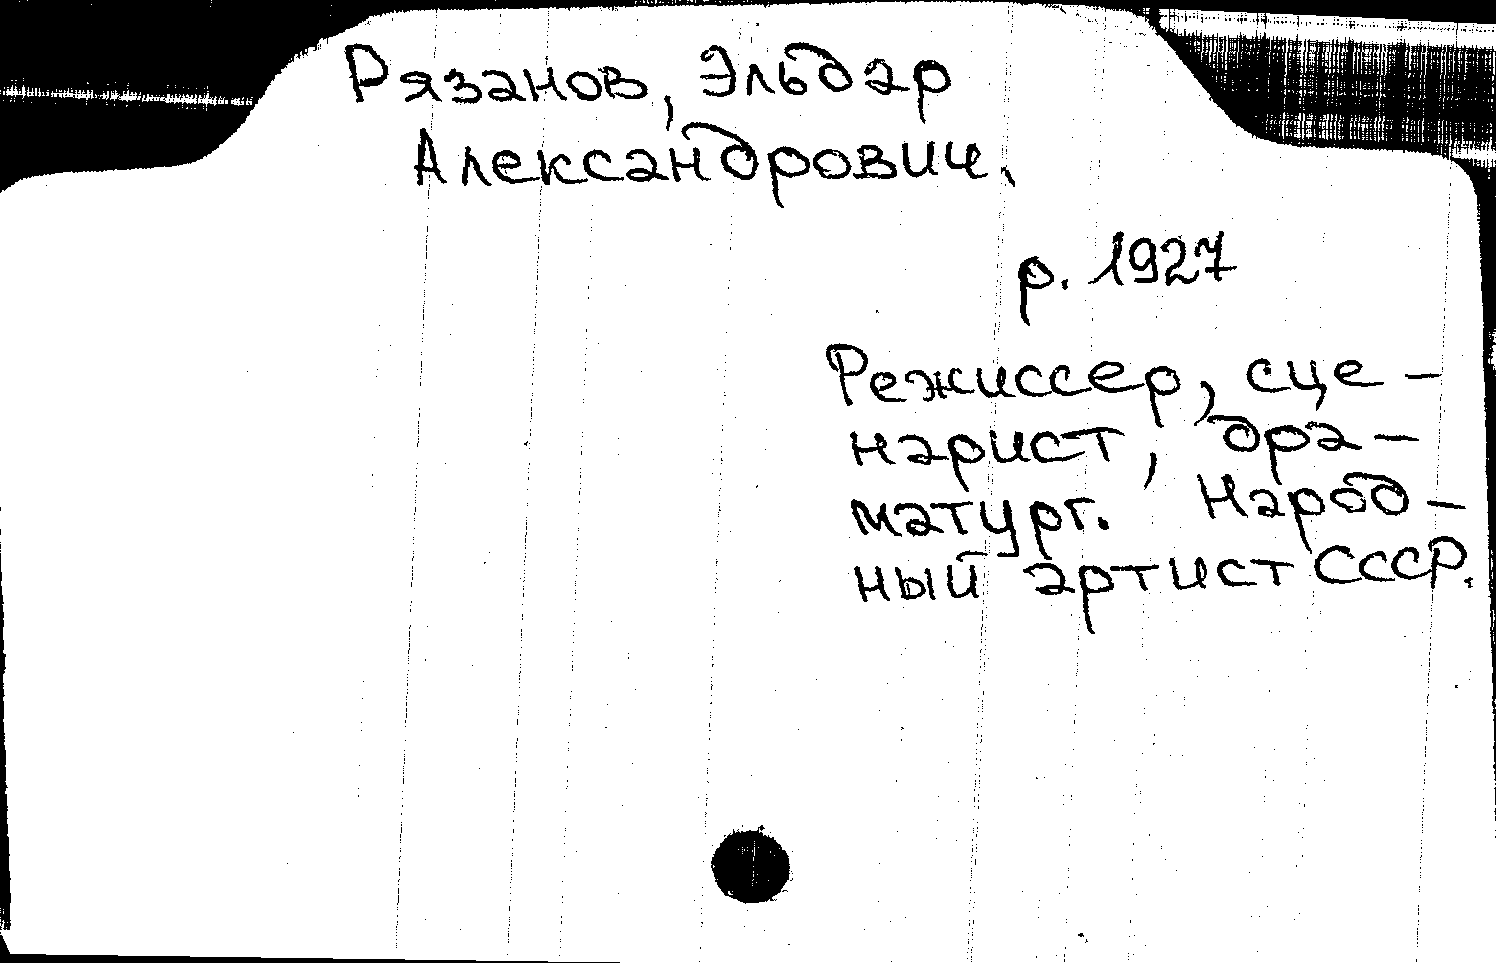 Рязанов, Эльдар
Александрович.
р. 1927
Режиссер, сце-
нарист, дра-
матург. Народ-
ный артист СССР.